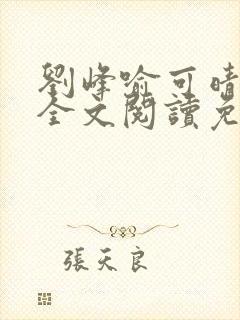 劉峰喻可晴
全文閱讀免
張天良